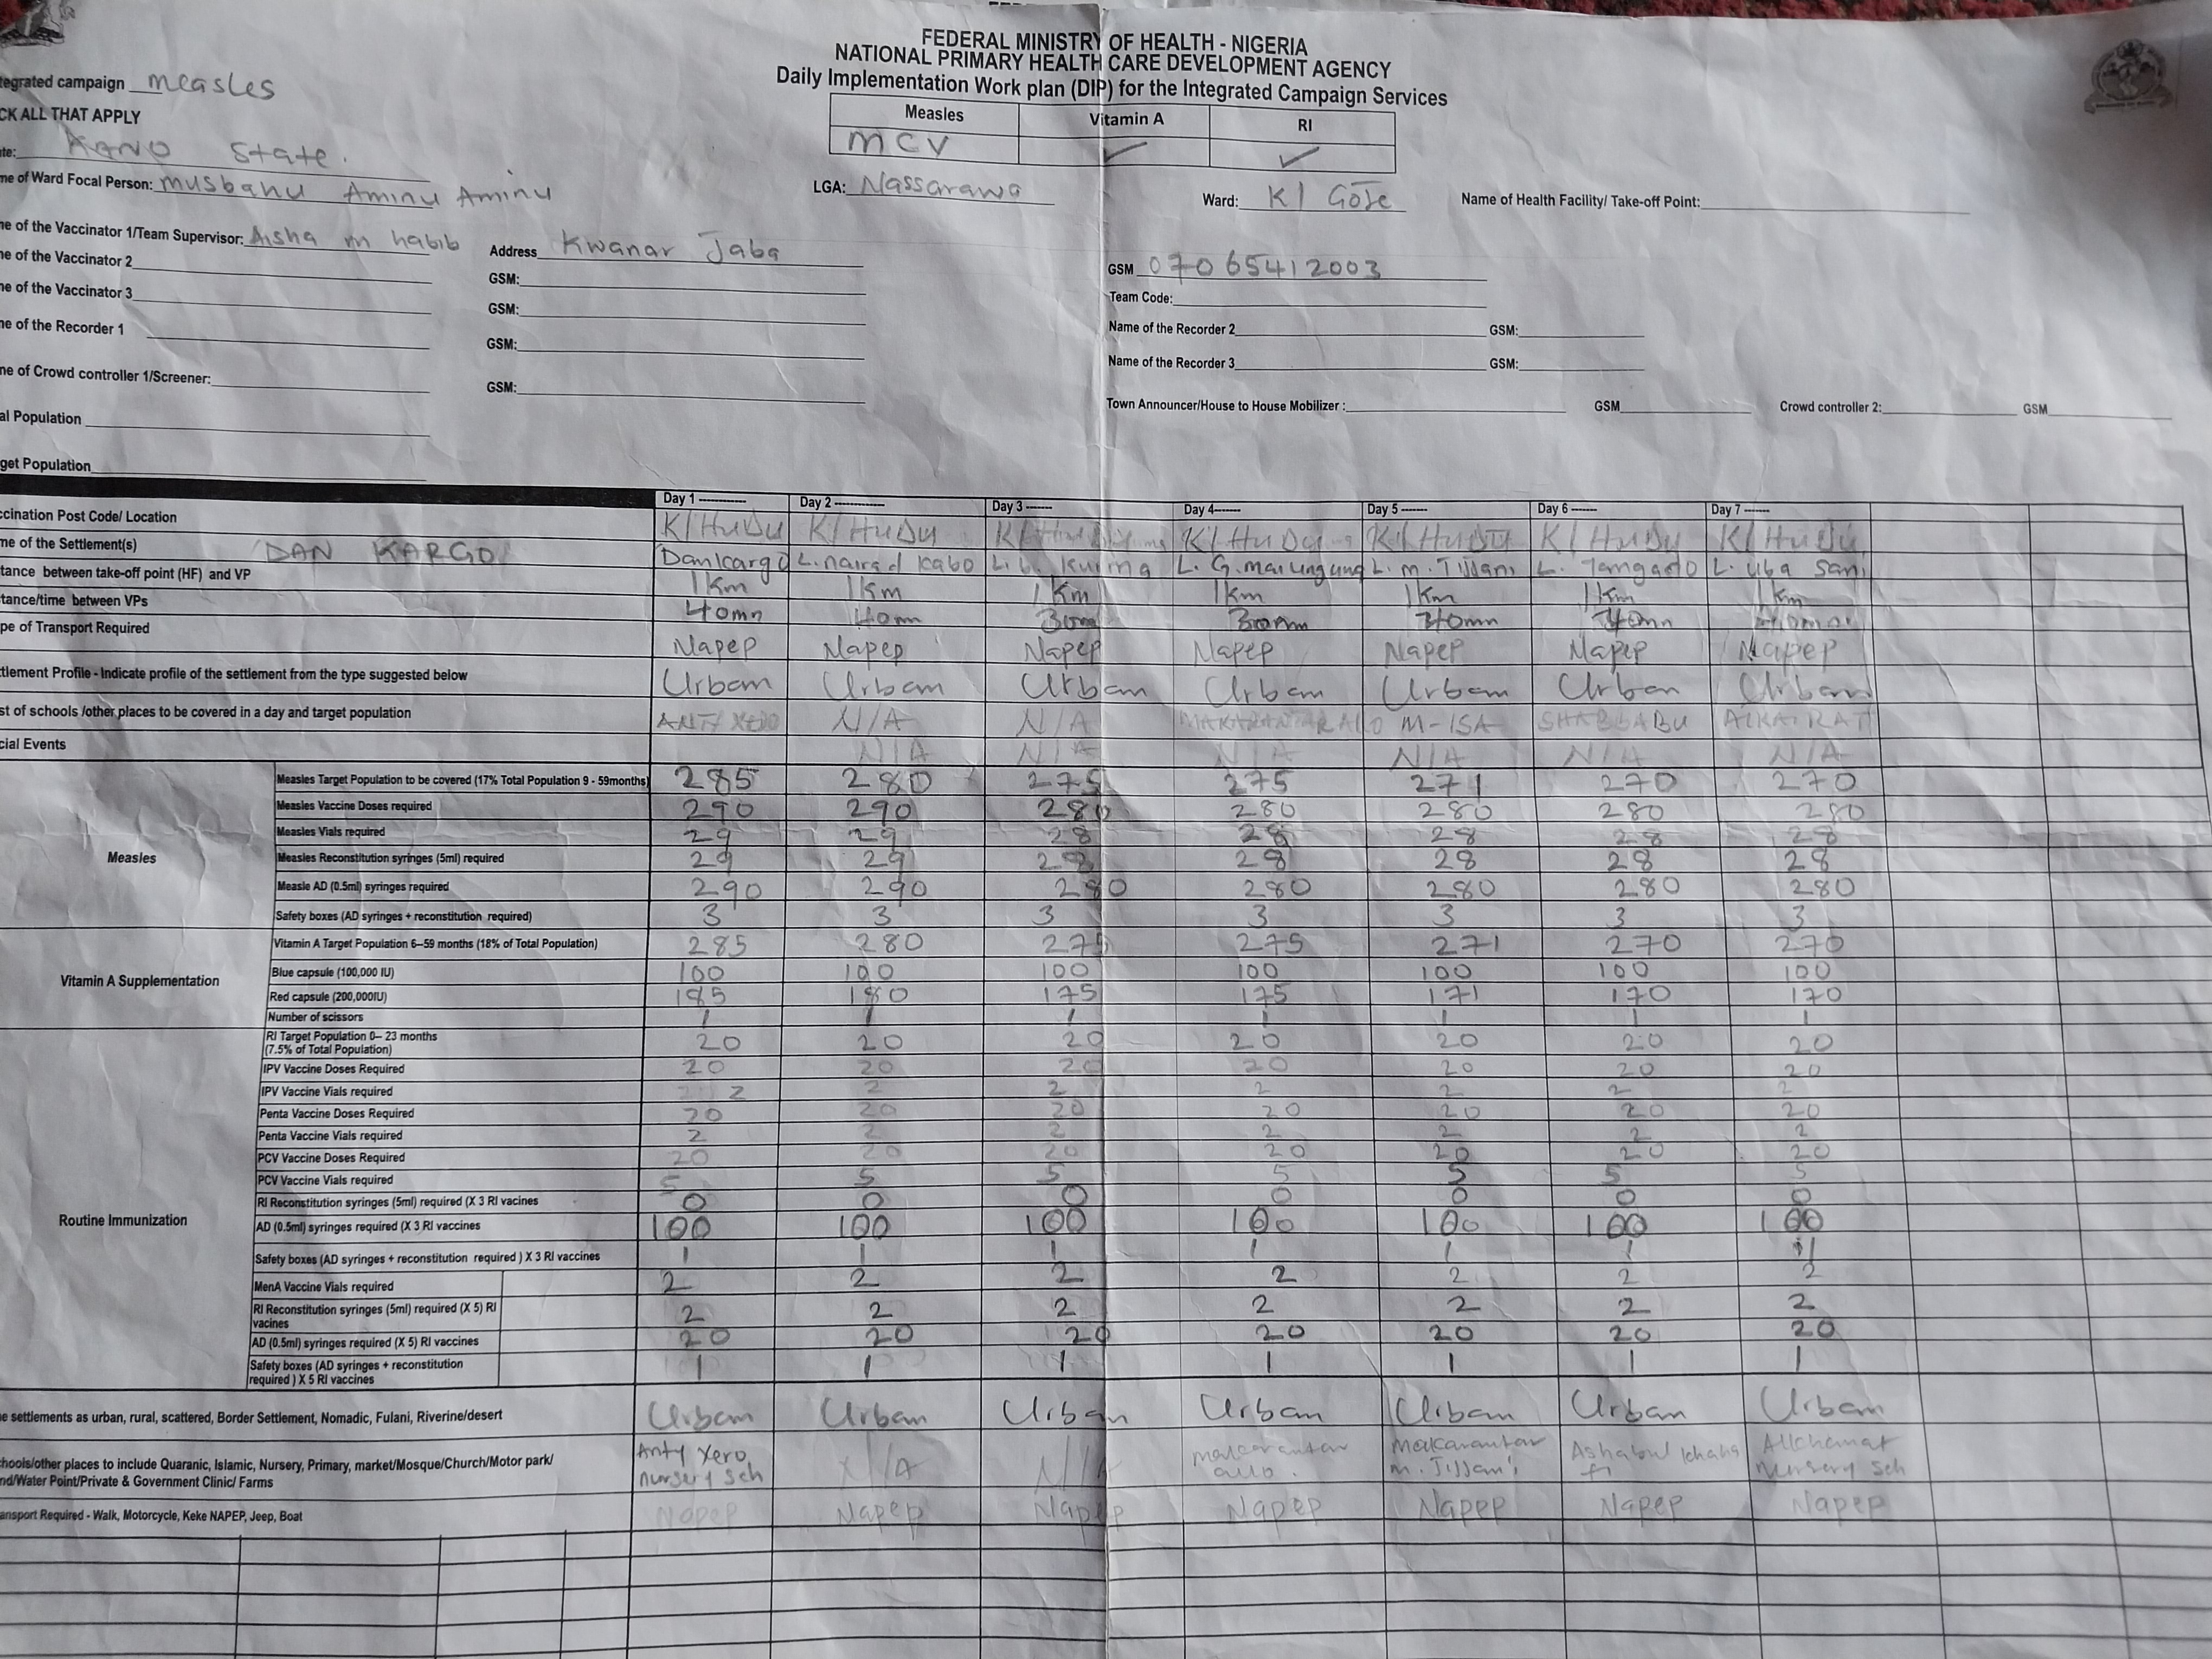 FEDERAL MINISTRY OF HEALTH - NIGERIA
NATIONAL PRIMARY HEALTH CARE DEVELOPMENT AGENCY
Daily Implementation Work plan (DIP) for the Integrated Campaign Services
tegrated campaign measles
CK ALL THAT APPLY
Measles Vitamin A RI
MCV ✓ ✓
te: Kano State.
LGA: Nassarawa
Ward: K/
Name of Health Facility/ Take-off Point:
me of Ward Focal Person: musbahu Aminu Aminu
ne of the Vaccinator 1/Team Supervisor: Aisha m habib Address Kwanar Jaba GSM 07065412003
ne of the Vaccinator 2 GSM: Team Code:
ne of the Vaccinator 3 GSM: Name of the Recorder 2 GSM:
ne of the Recorder 1 GSM: Name of the Recorder 3 GSM:
ne of Crowd controller 1/Screener: GSM: Town Announcer/House to House Mobilizer: GSM Crowd controller 2: GSM
al Population
get Population
Day 1 Day 2 Day 3 Day 4 Day 5 Day 6 Day 7
ccination Post Code/ Location DAN KARGO K/HuDu K/HuDu K/HuDu K/HuDu K/HuDu
me of the Settlement(s) Dan kargo L. kuma L. G. maiungu L. m. L. L. uba sani
tance between take-off point (HF) and VP 1km 1km 1km 1km 1km 1km 1km
tance/time between VPs 40mn 40mn 30mn 30mn 40mn
pe of Transport Required Napep Napep Napep Napep Napep Napep Napep
ttlement Profile - Indicate profile of the settlement from the type suggested below Urban Urban Urban Urban Urban Urban Urban
st of schools /other places to be covered in a day and target population N/A N/A M-ISA
cial Events N/A N/A N/A N/A N/A N/A
Measles
Measles Target Population to be covered (17% Total Population 9 - 59months) 285 280 275 275 271 270 270
Measles Vaccine Doses required 290 290 280 280 280 280 280
Measles Vials required 29 29 28 28 28 28 28
Measles Reconstitution syringes (5ml) required 29 29 28 28 28 28 28
Measle AD (0.5ml) syringes required 290 290 280 280 280 280 280
Safety boxes (AD syringes + reconstitution required) 3 3 3 3 3 3 3
Vitamin A Supplementation
Vitamin A Target Population 6–59 months (18% of Total Population) 285 280 275 275 271 270 270
Blue capsule (100,000 IU) 100 100 100 100 100 100 100
Red capsule (200,000IU) 185 180 175 175 171 170 170
Number of scissors 1 1 1 1 1 1 1
Routine Immunization
RI Target Population 0– 23 months (7.5% of Total Population) 20 20 20 20 20 20 20
IPV Vaccine Doses Required 20 20 20 20 20 20 20
IPV Vaccine Vials required 2 2 2 2 2 2 2
Penta Vaccine Doses Required 20 20 20 20 20 20 20
Penta Vaccine Vials required 2 2 2 2 2 2 2
PCV Vaccine Doses Required 20 20 20 20 20 20 20
PCV Vaccine Vials required 5 5 5 5 5 5 5
RI Reconstitution syringes (5ml) required (X 3 RI vacines 0 0 0 0 0 0 0
AD (0.5ml) syringes required (X 3 RI vaccines 100 100 100 100 100 100 100
Safety boxes (AD syringes + reconstitution required) X 3 RI vaccines 1 1 1 1 1 1 1
MenA Vaccine Vials required 2 2 2 2 2 2 2
RI Reconstitution syringes (5ml) required (X 5) RI vaccines 2 2 2 2 2 2 2
AD (0.5ml) syringes required (X 5) RI vaccines 20 20 20 20 20 20 20
Safety boxes (AD syringes + reconstitution required ) X 5 RI vaccines 1 1 1 1 1 1 1
e settlements as urban, rural, scattered, Border Settlement, Nomadic, Fulani, Riverine/desert Urban Urban Urban Urban Urban Urban Urban
hools/other places to include Quranic, Islamic, Nursery, Primary, market/Mosque/Church/Motor park/
nd/Water Point/Private & Government Clinic/ Farms
Anty Yero nursery sch
makarantar
makarantar m.
Nursery sch
ansport Required - Walk, Motorcycle, Keke NAPEP, Jeep, Boat Napep Napep Napep Napep Napep Napep Napep